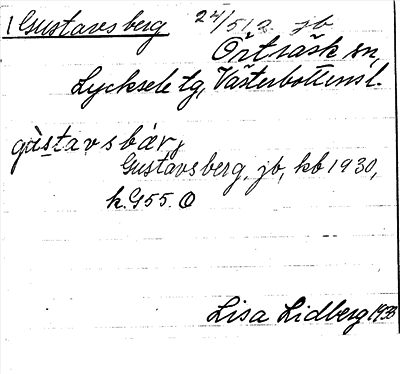 1 Gustavsberg 24/512. jb
Örträsk sn,
Lycksele tg, Västerbottens l.
gùstavsbärj
Gustavsberg, jb, kb 1930,
k. G 55. O
Lisa Lidberg 1933